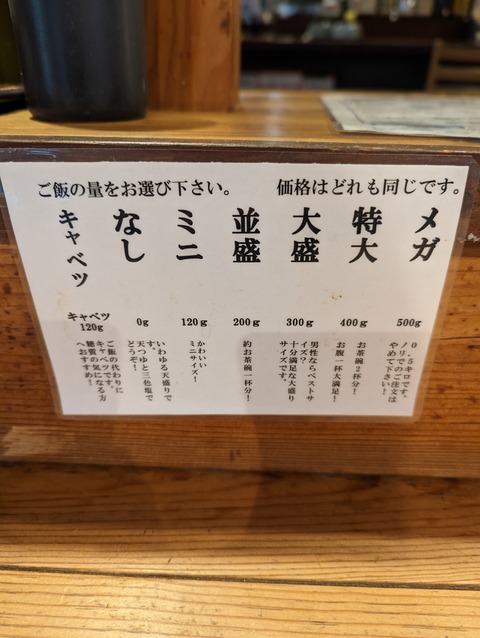 ご飯の量をお選び下さい。 価格はどれも同じです。
メガ
500g
0.5キロです。
ノリでのご注文は
やめて下さい！
特大
400g
お茶碗2杯分！
お腹一杯大満足！
大盛
300g
男性ならベストサ
イズ？
十分満足な大盛り
サイズです。
並盛
200g
約お茶碗一杯分！
ミニ
120g
かわいい
ミニサイズ！
なし
0g
いわゆる天盛りで
す。
天つゆと三色塩で
どうぞ！
キャベツ
キャベツ
120g
ご飯の代わりに
キャベツです。
糖質の気になる方
へおすすめ！